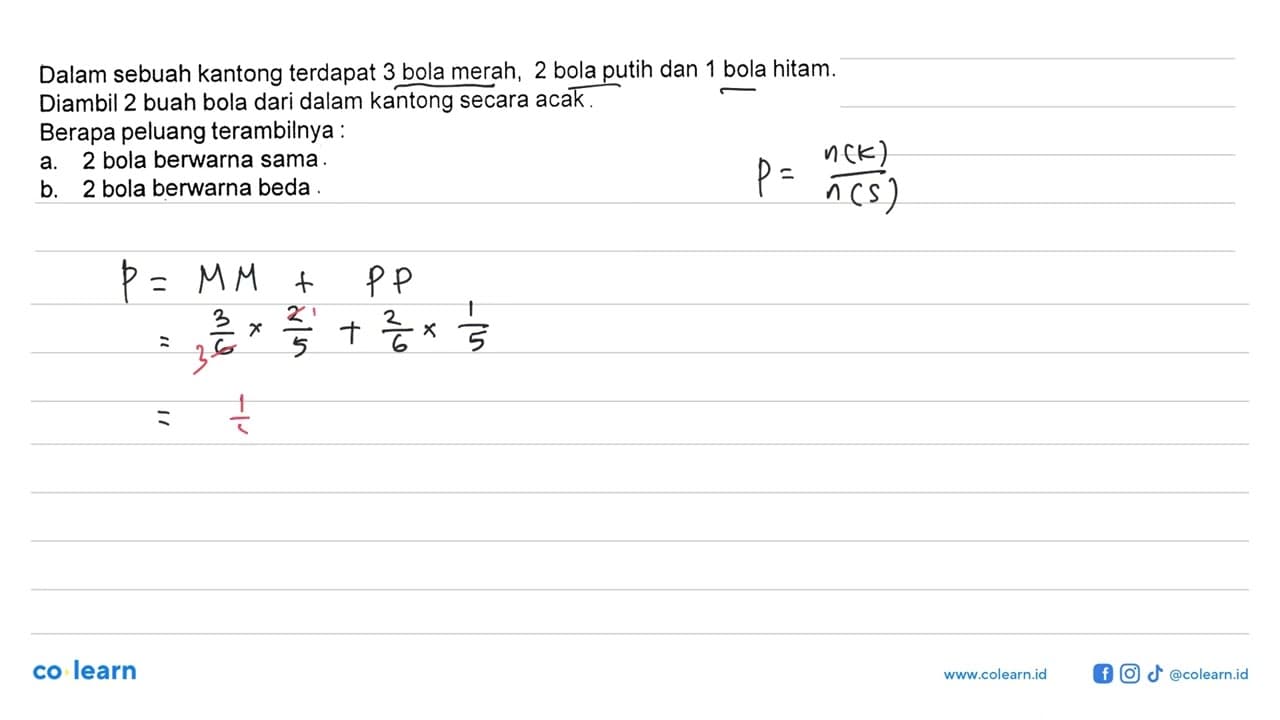 Dalam sebuah kantong terdapat 3 bola merah, 2 bola putih dan 1 bola hitam.
Diambil 2 buah bola dari dalam kantong secara acak.
Berapa peluang terambilnya :
a. 2 bola berwarna sama.
b. 2 bola berwarna beda.
P = n(K)/n(S)
P = MM + PP
= 3/6 3 × 2/5 1 + 2/6 × 1/5
= 1/
co learn
www.colearn.id
@colearn.id